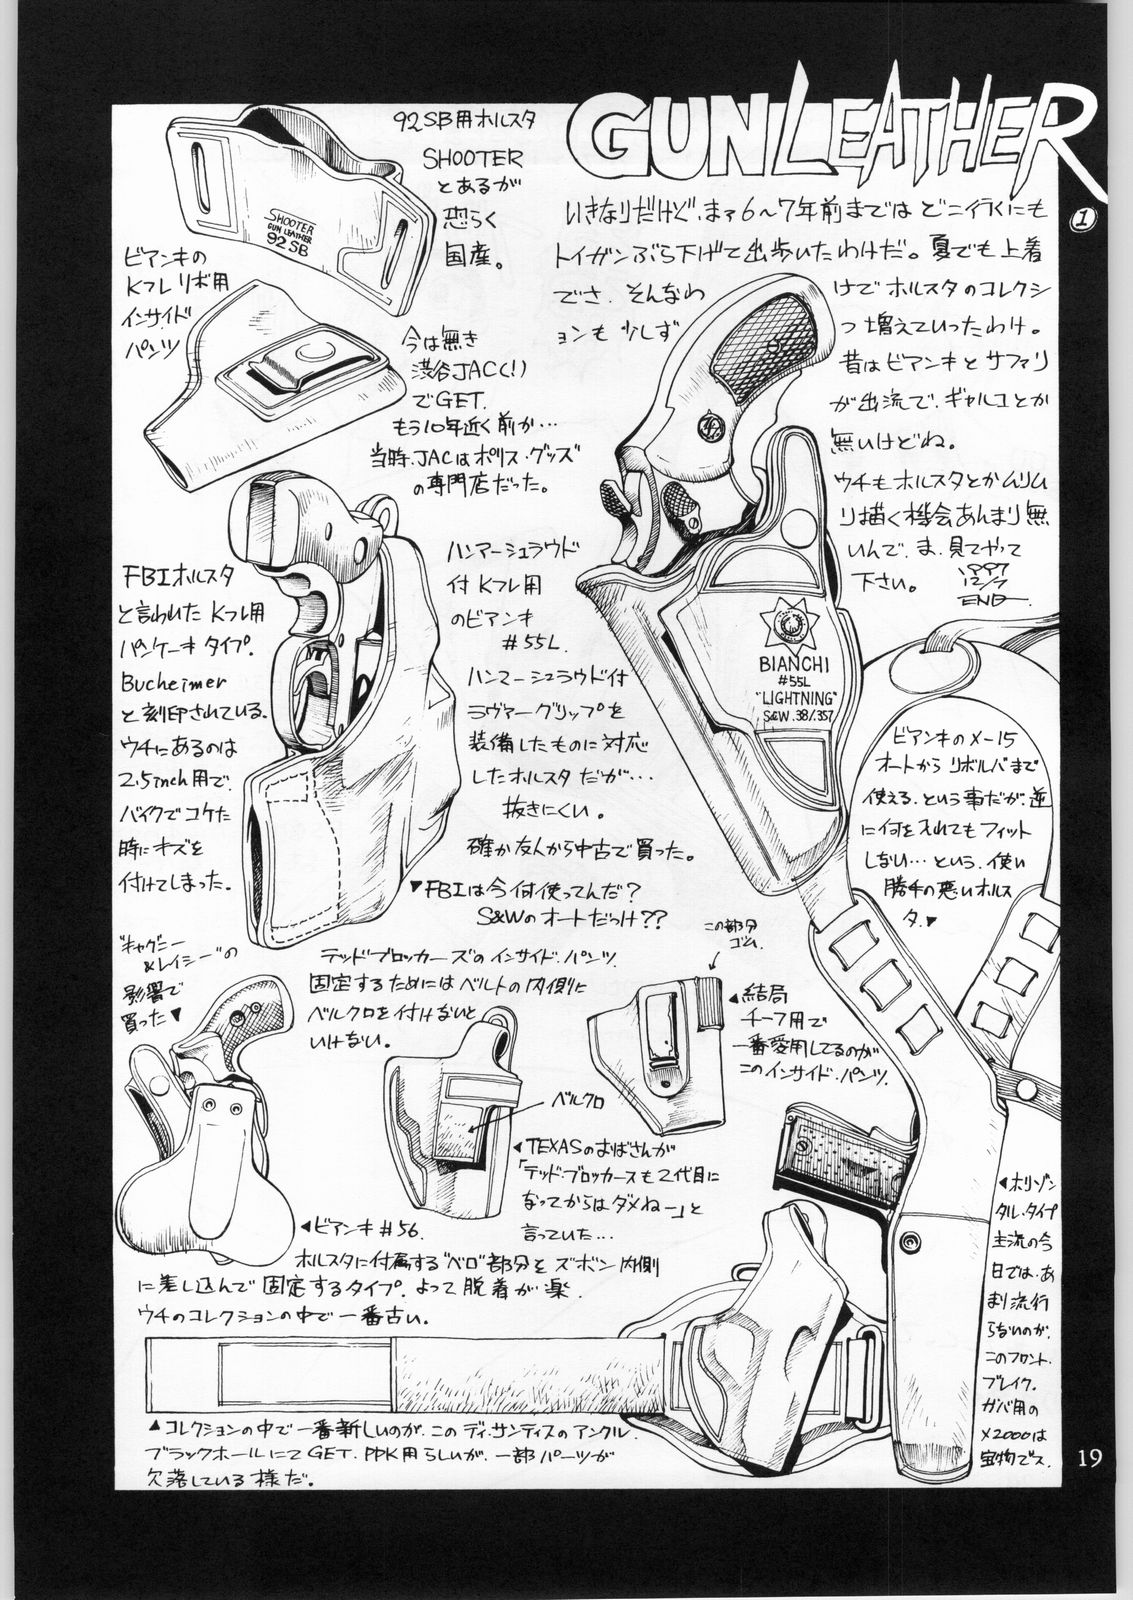 GUNLEATHER
①
いきなりだけど、まァ6〜7年前まではどこ行くにも
トイガンぶら下げて出歩いたわけだ。夏でも上着
でさ、そんなわけでホルスタのコレクシ
ョンも少しずつ増えていったわけ。
昔はビアンキとサファリ
が主流で、ギャルコとか
無いけどね。
ウチもホルスタとかムリムリ
描く機会あんまり無
いんで、ま、見てやって
下さい。
1997
12/7
END
92SB用ホルスタ
SHOOTER
とあるが
恐らく
国産。
SHOOTER
GUN LEATHER
92SB
ビアンキの
Kフレリボ用
インサイド
パンツ
今は無き
渋谷JAC(!)
でGET.
もう10年近く前か…
当時、JACはポリス・グッズ
の専門店だった。
FBIホルスタ
と言われたKフレ用
パンケーキタイプ.
Bucheimer
と刻印されている.
ウチにあるのは
2.5inch用で、
バイクでコケた
時にキズを
付けてしまった。
ハンマーシュラウド
付Kフレ用
のビアンキ
#55L.
ハンマーシュラウド付
ラヴァーグリップを
装備したものに対応
したホルスタだが…
抜きにくい。
確か友人から中古で買った。
BIANCHI
#55L
"LIGHTNING"
S&W .38/.357
▼FBIは今何使ってんだ?
S&Wのオートだっけ??
ビアンキのX-15
オートからリボルバまで
使える.という事だが、逆
に何を入れてもフィット
しない…という、使い
勝手の悪いホルス
タ.▼
"キャグニー
&レイシー"の
影響で
買った▼
テッド・ブロッカーズのインサイド・パンツ.
固定するためにはベルトの内側に
ベルクロを付けないと
いけない。
ベルクロ
この部分
ゴム.
◀結局
チーフ用で
一番愛用してるのが
このインサイド・パンツ.
◀TEXASのおばさんが
「テッド・ブロッカースも2代目に
なってからはダメねー」と
言っていた…
◀ビアンキ#56.
ホルスタに付属する"ベロ"部分をズボン内側
に差し込んで固定するタイプ.よって脱着が楽.
ウチのコレクションの中で一番古い.
◀ホリゾン
タル・タイプ
主流の今
日では、あ
まり流行
らないのが、
このフロント
ブレイク.
ガバ用の
X2000は
宝物でス.
▲コレクションの中で一番新しいのが、このディ・サンティスのアンクル.
ブラックホールにてGET. PPK用らしいが、一部パーツが
欠落している様だ。
19